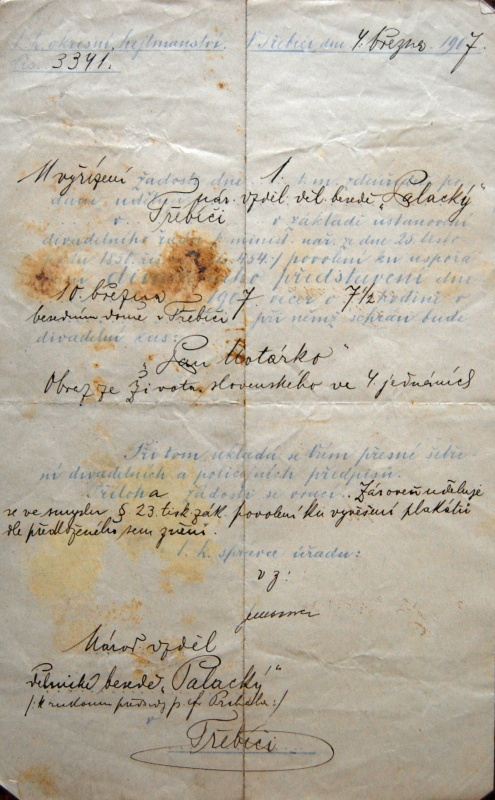 C. k. okresní hejtmanství. V Třebíči dne 4. března 1907.
Čís. 3341.
U vyřízení žádosti dne 1. t. m. zdejšímu po
daní uděluje nár. vzděl. děl. besedě „Palacký“
v Třebíči na základě ustanovení
divadelního řádu minist. nař. z dne 25. listo
padu 1850. čís. 454./ povolení ku uspořá
dání divadelního představení dne
10. března 1907 večer o 7 1/2 hodině v
besedním domě v Třebíči při němž sehrán bude
divadelní kus:
„Pan Notárko“
Obraz ze života slovenského ve 4 jednáních
Při tom ukládá se Vám přesné šetře
ní divadelních a policejních předpisů.
Příloha žádosti se vrací. Zároveň uděluje
se ve smyslu § 23. tisk. zák. povolení ku vyvěšení plakátů
dle předloženého sem znění.
C. k. správce úřadu:
v z:
Národ. vzděl
dělnické besedě „Palacký“
/: k rukoum předsedy p.
v
Třebíči